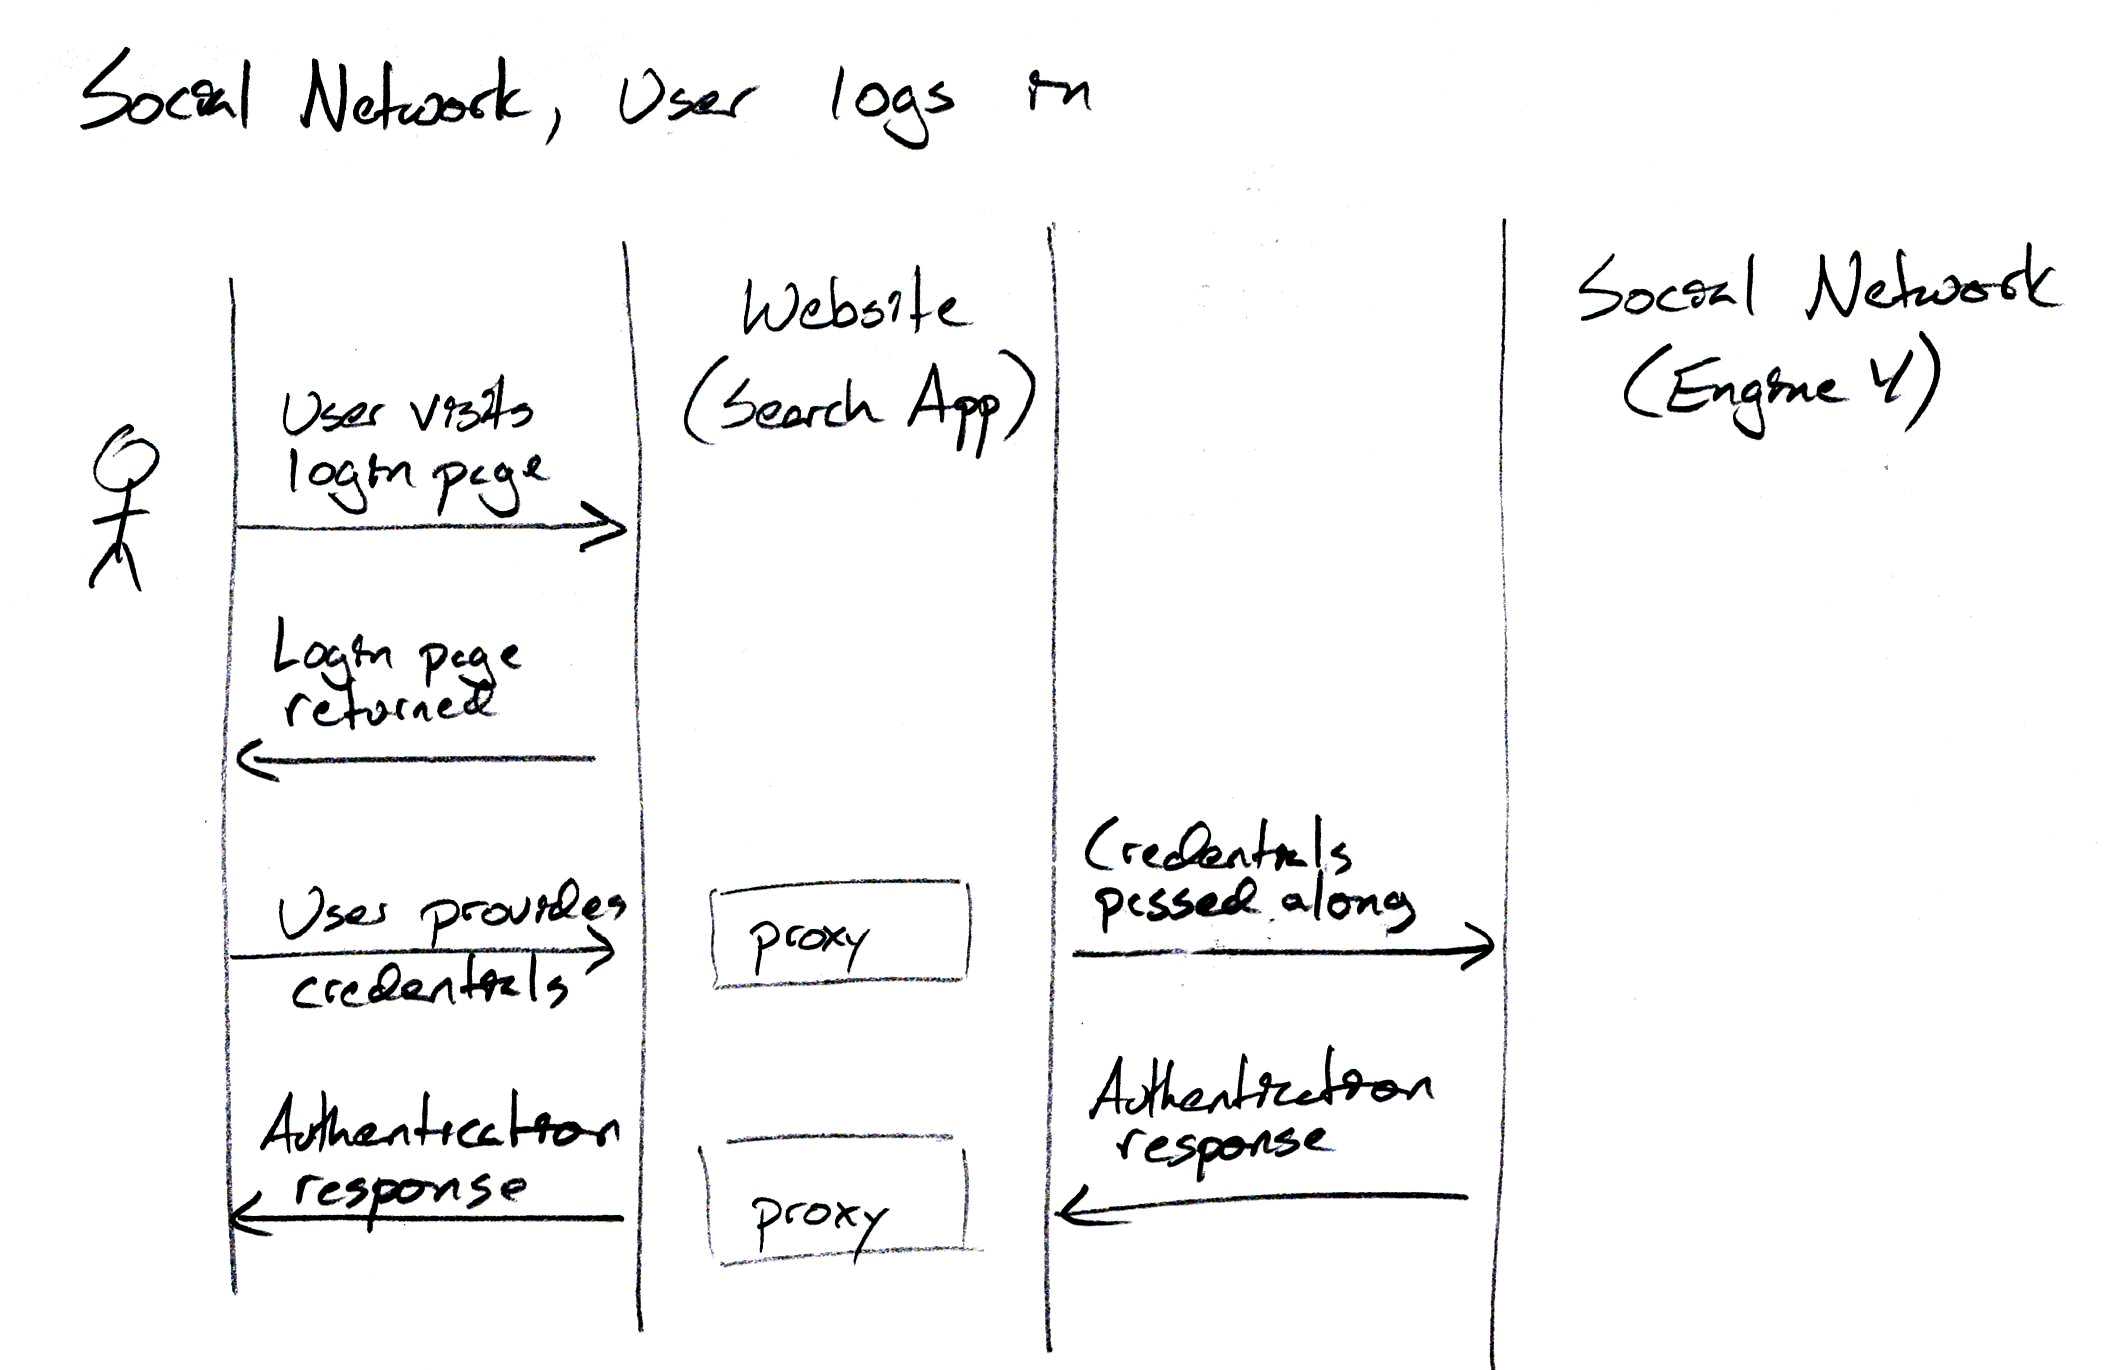 Social Network, User logs in
Website
(Search App)
Social Network
(Engine Y)
User visits
login page
Login page
returned
User provides
credentials
proxy
Credentials
passed along
Authentication
response
proxy
Authentication
response